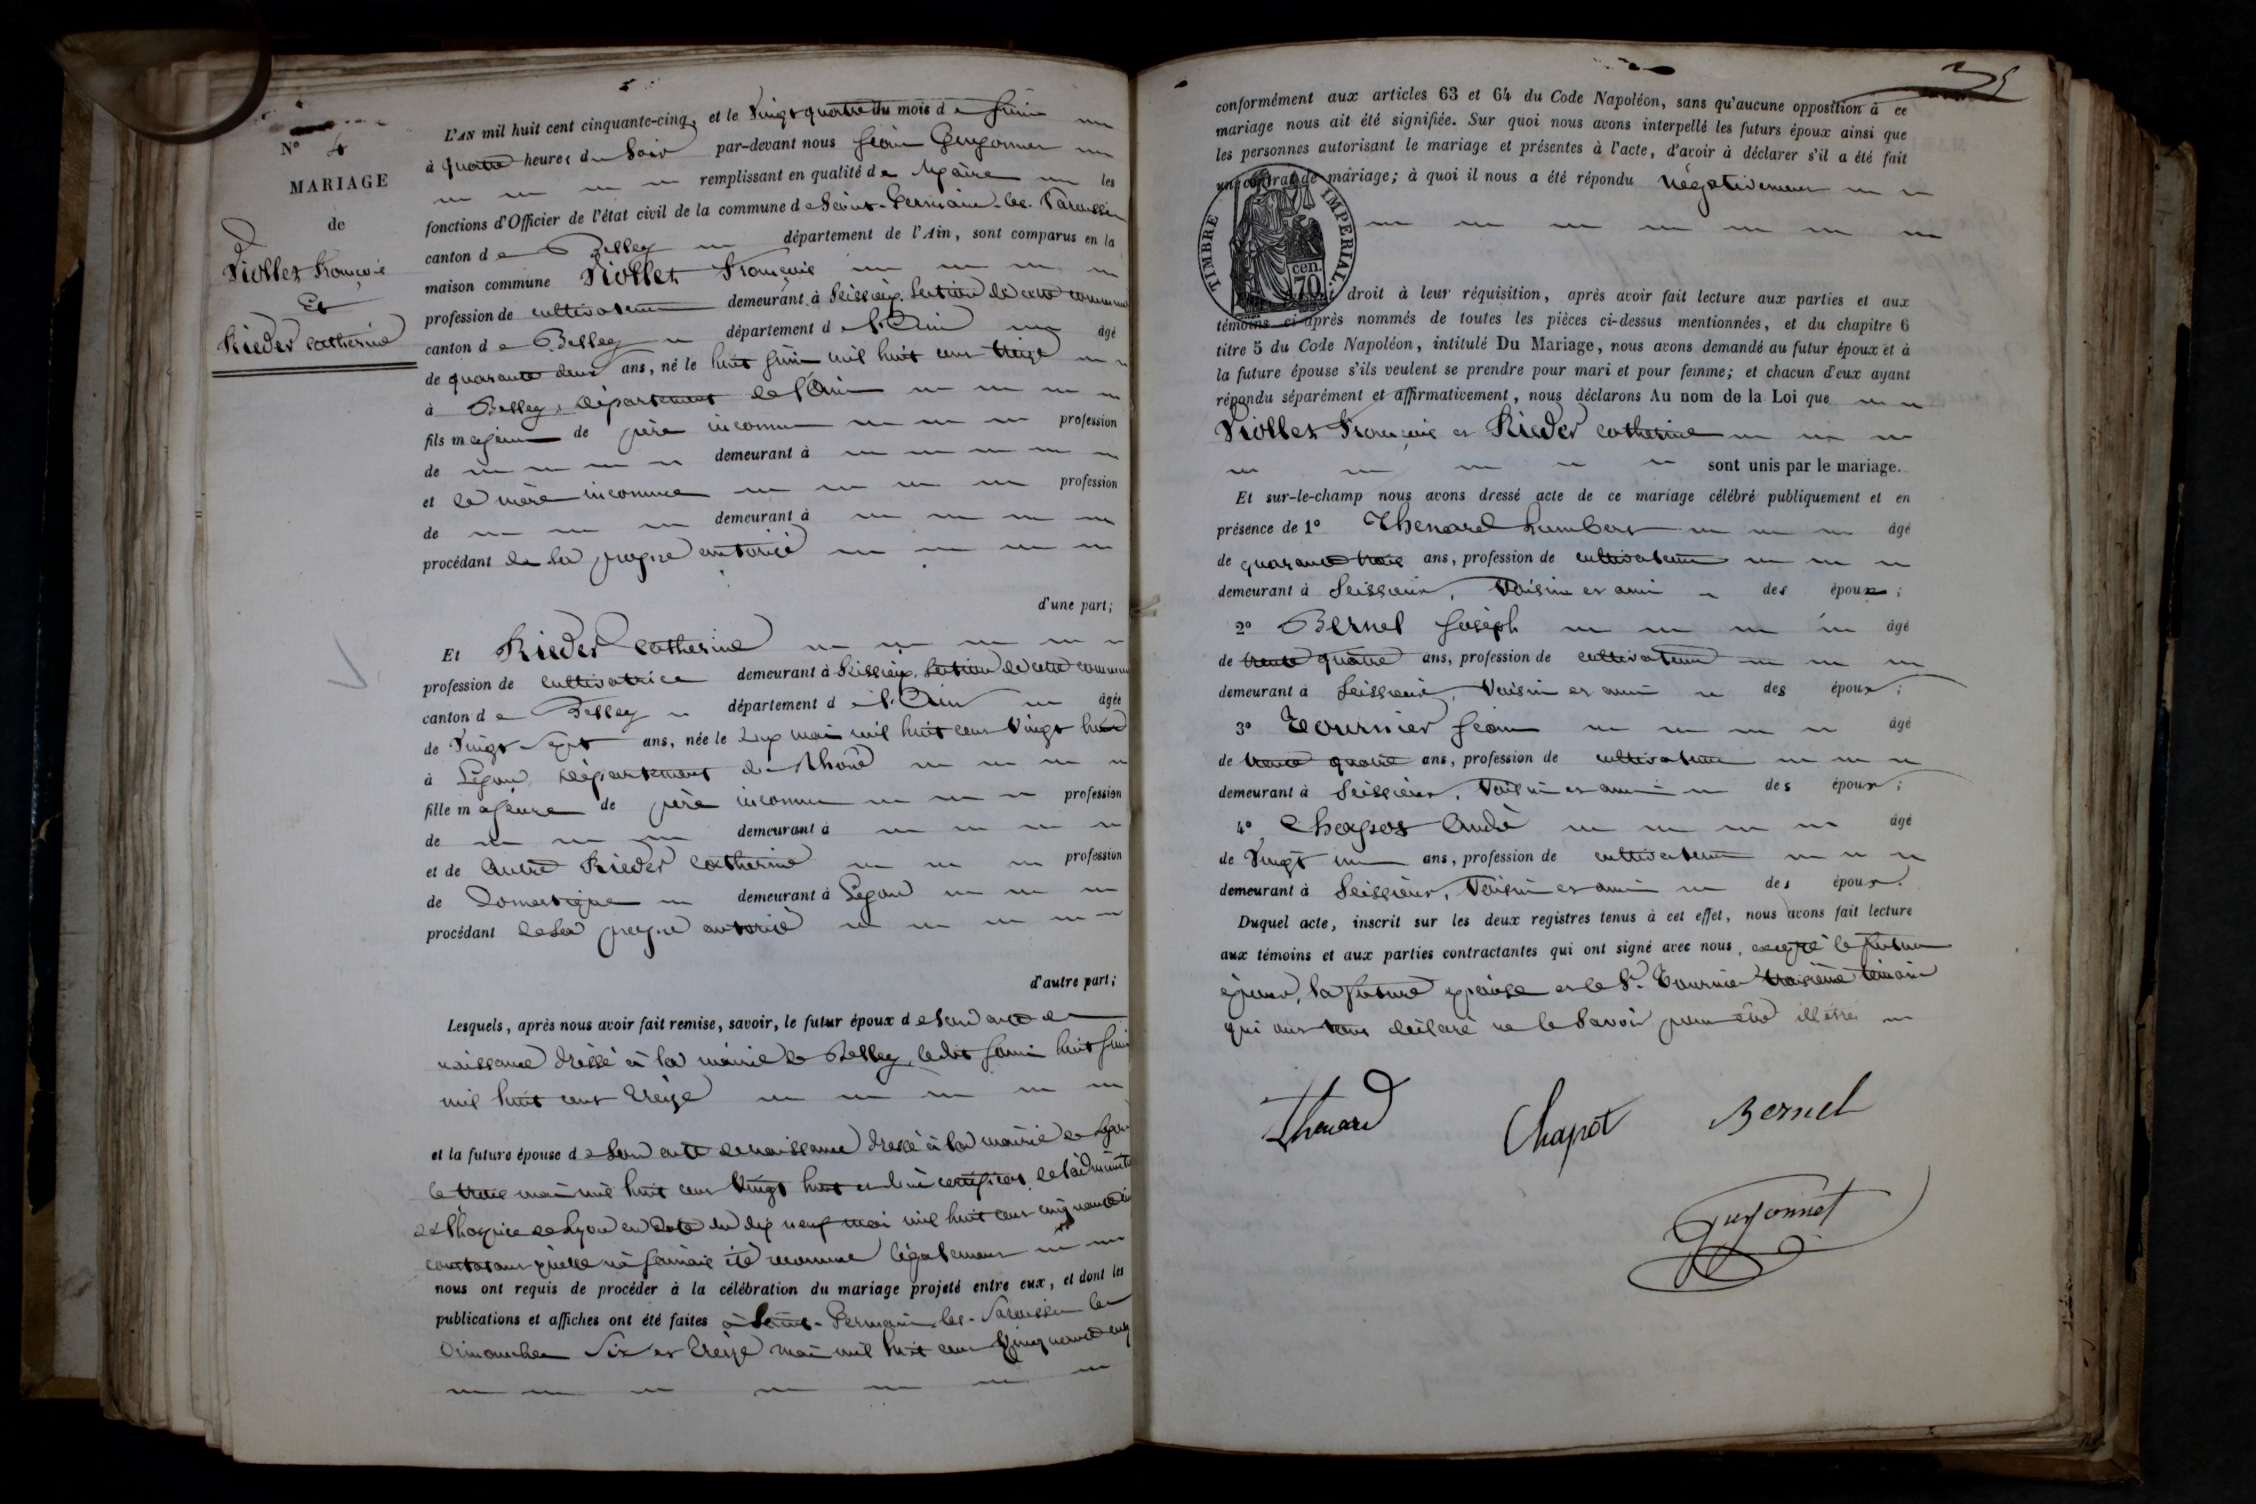 N° 4
MARIAGE
de
Viollet François
Et
Rieder Catherine
L'AN mil huit cent cinquante-cinq, et le Vingt quatre du mois de Juin
à quatre heures du Soir par-devant nous Jean Guyonnet
remplissant en qualité de Maire les
fonctions d'Officier de l'état civil de la commune de Saint-Germain-les-Paroisses
canton de Belley département de l'Ain, sont comparus en la
maison commune Viollet François
profession de cultivateur demeurant à Seissieux, Section de cette commune
canton de Belley département de l'Ain âgé
de quarante deux ans, né le huit Juin mil huit cent treize
à Belley, département de l'Ain
fils majeur de père inconnu profession
de demeurant à
et de mère inconnue profession
de demeurant à
procédant de sa propre autorité
d'une part;
Et Rieder Catherine
profession de cultivatrice demeurant à Seissieux, Section de cette commune
canton de Belley département de l'Ain âgée
de Vingt Sept ans, née le deux mai mil huit cent Vingt huit
à Lyon, département du Rhône
fille majeure de père inconnu profession
de demeurant à
et de autre Rieder Catherine profession
de Domestique demeurant à Lyon
procédant de sa propre autorité
d'autre part;
Lesquels, après nous avoir fait remise, savoir, le futur époux de son acte de
naissance dressé à la mairie de Belley, ledit jour huit Juin
mil huit cent treize
et la future épouse de son acte de naissance dressé à la mairie de Lyon
le trois mai mil huit cent Vingt huit et d'un certificat de l'administ
de l'hospice de Lyon en date du dix neuf mai mil huit cent cinquante
constatant qu'elle n'a jamais été reconnue légalement
nous ont requis de procéder à la célébration du mariage projeté entre eux, et dont les
publications et affiches ont été faites à Saint-Germain-les-Paroisses les
Dimanches Six et Treize mai mil huit cent cinquante cinq
conformément aux articles 63 et 64 du Code Napoléon, sans qu'aucune opposition à ce
mariage nous ait été signifiée. Sur quoi nous avons interpellé les futurs époux ainsi que
les personnes autorisant le mariage et présentes à l'acte, d'avoir à déclarer s'il a été fait
un contrat de mariage; à quoi il nous a été répondu négativement
TIMBRE IMPERIAL.
cen. 70
droit à leur réquisition, après avoir fait lecture aux parties et aux
témoins ci-après nommés de toutes les pièces ci-dessus mentionnées, et du chapitre 6
titre 5 du Code Napoléon, intitulé Du Mariage, nous avons demandé au futur époux et à
la future épouse s'ils veulent se prendre pour mari et pour femme; et chacun d'eux ayant
répondu séparément et affirmativement, nous déclarons Au nom de la Loi que
Viollet François et Rieder Catherine
sont unis par le mariage.
Et sur-le-champ nous avons dressé acte de ce mariage célébré publiquement et en
présence de 1° Thenard Humbert âgé
de quarante trois ans, profession de cultivateur
demeurant à Seissieux, Voisin et ami des époux;
2° Bernel Joseph âgé
de trente quatre ans, profession de cultivateur
demeurant à Seissieux, Voisin et ami des époux;
3° Tournier Jean âgé
de trente quatre ans, profession de cultivateur
demeurant à Seissieux, Voisin et ami des époux;
4° Chapot André âgé
de Vingt un ans, profession de cultivateur
demeurant à Seissieux, Voisin et ami des époux.
Duquel acte, inscrit sur les deux registres tenus à cet effet, nous avons fait lecture
aux témoins et aux parties contractantes qui ont signé avec nous, excepté le futur
époux, la future épouse et le Sr. Tournier troisième témoin
qui ont tous déclaré ne le savoir pour être illétrés
Thenard
Chapot
Bernel
Guyonnet